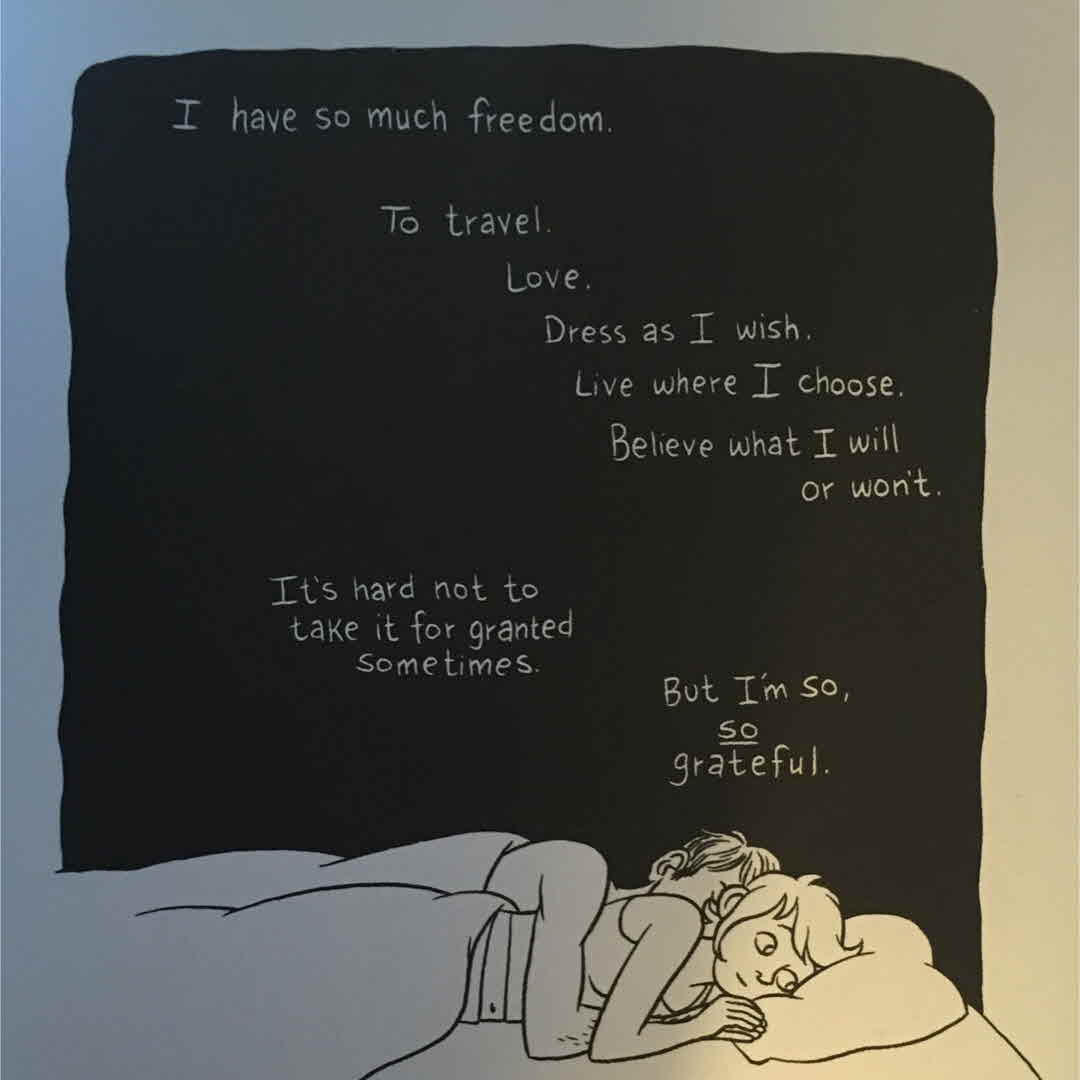 I have so much freedom.
To travel.
Love.
Dress as I wish.
Live where I choose.
Believe what I will
or won't.
It's hard not to
take it for granted
sometimes.
But I'm so,
so
grateful.